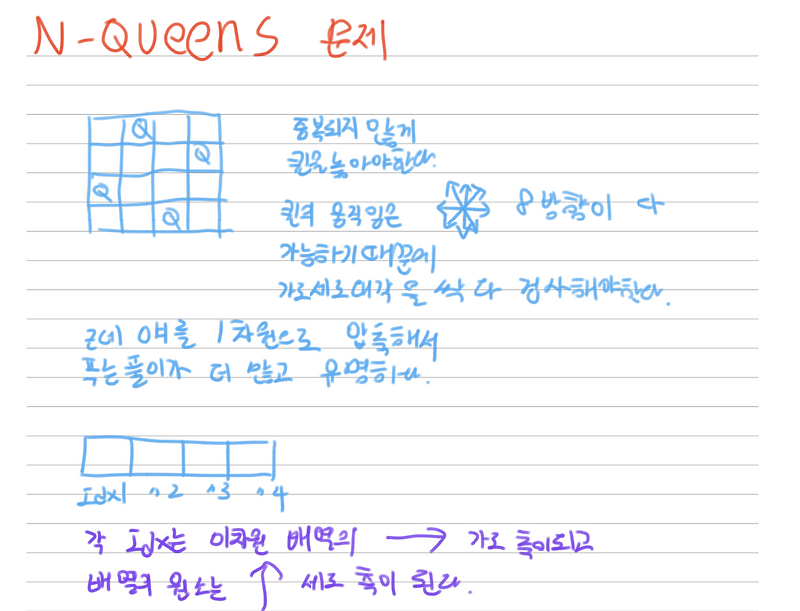 N-Queens 문제
Q
Q
Q
Q
중복되지 않게
퀸을 놓아야한다.
퀸의 움직임은 8방향이 다
가능하기 때문에
가로세로대각을 싹 다 검사해야한다.
근데 얘를 1차원으로 압축해서
푸는풀이가 더 많고 유명하다.
Idx1 "2 "3 "4
각 Idx는 이차원 배열의 → 가로 축이되고
배열의 원소는 ↑ 세로 축이 된다.